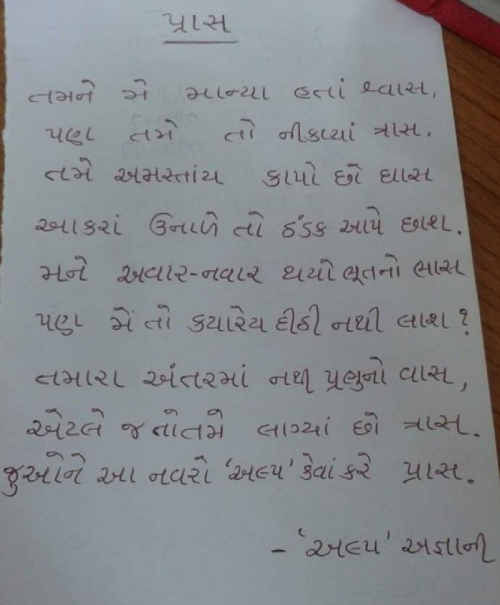 પ્રાસ
તમને મે માન્યા હતાં શ્વાસ,
પણ તમે તો નીકળ્યાં ત્રાસ.
તમે અમસ્તાંય કાપો છો ઘાસ
આકરાં ઉનાળે તો ઠંડક આપે છાશ.
મને અવાર-નવાર થયો ભૂતનો ભાસ
પણ મેં તો કયારેય દીઠી નથી લાશ?
તમારા અંતરમાં નથી પ્રભુનો વાસ,
એટલે જ તો તમે લાગ્યાં છો ત્રાસ.
જુઓને આ નવરો 'અલ્પ' કેવાં કરે પ્રાસ.
- 'અલ્પ' અજ્ઞાની